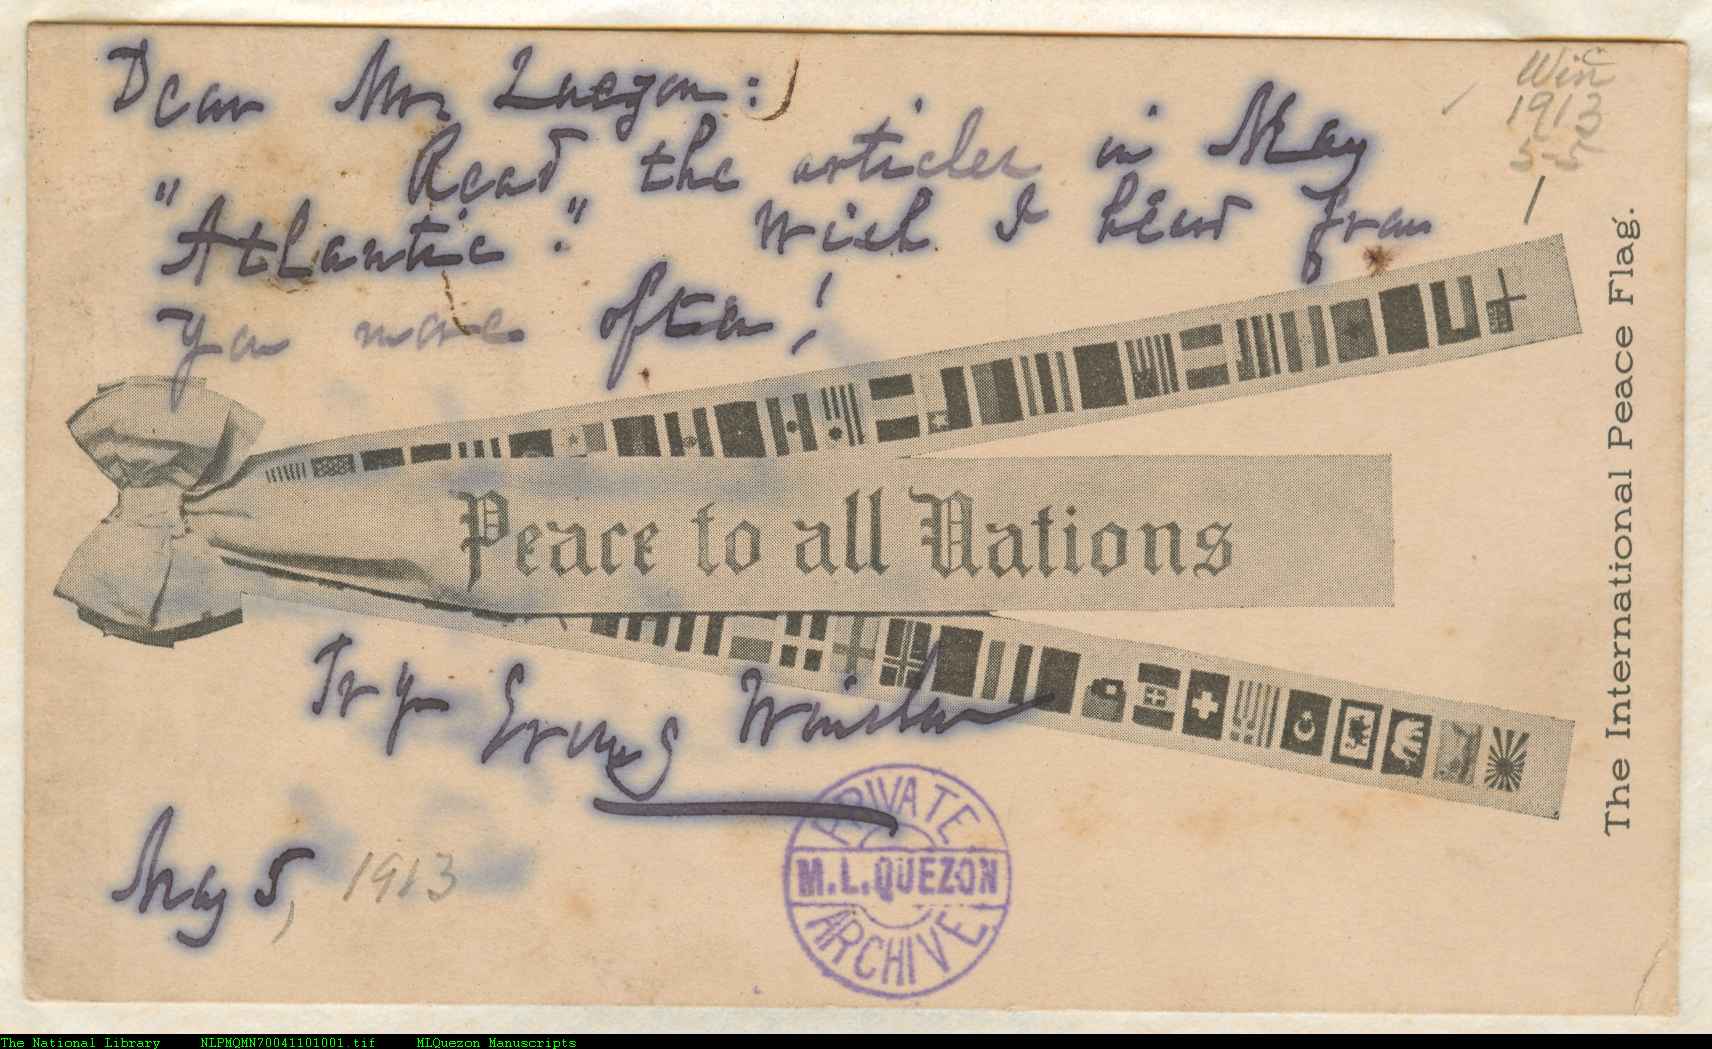 Dear Mr. Quezon:
Read the articles in May
"Atlantic". Wish I heard from
you more often!
Win
1913
5-5
1
Peace to all Nations
The International Peace Flag.
Tr yr Erving Winslow
May 5, 1913
PRIVATE
M.L.QUEZON
ARCHIVE
The National Library NLPMQMN70041101001.tif MLQuezon Manuscripts